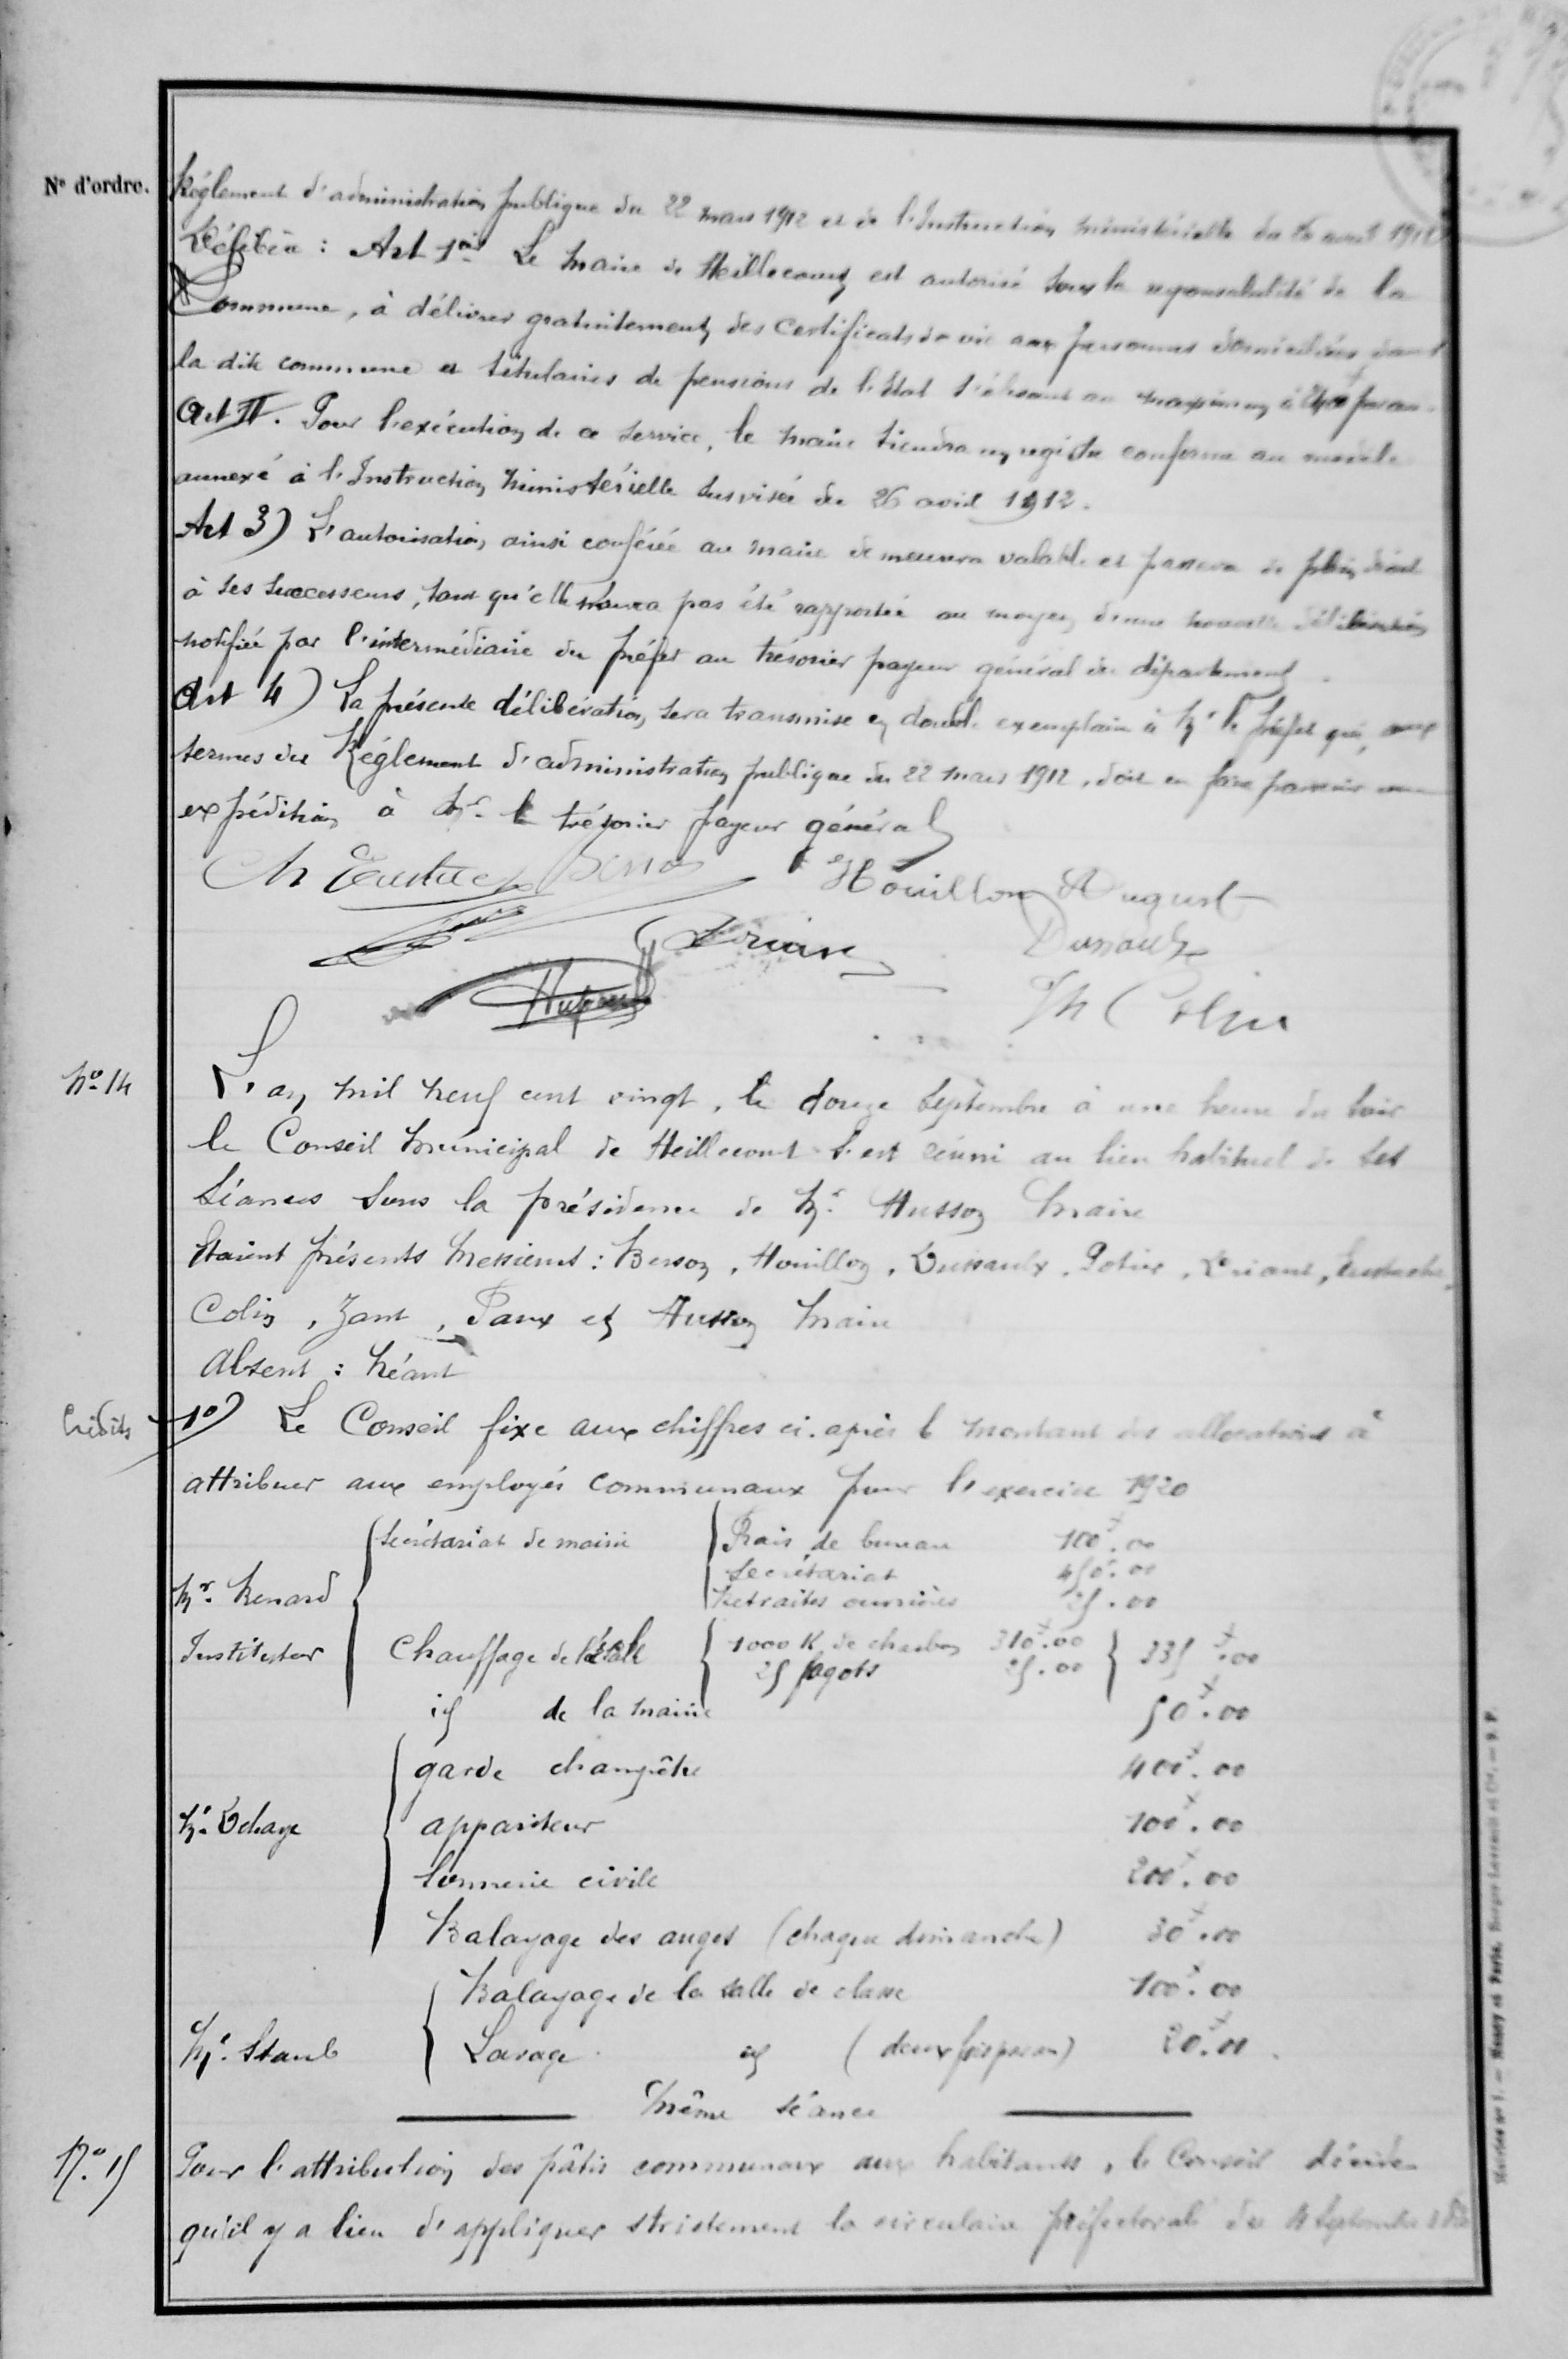 N° d'ordre.
Règlement d'administration publique du 22 mars 1912 et de l'Instruction ministérielle du 26 avril 1912
Délibère : Art 1er Le maire de Heillecourt est autorisé sous la responsabilité de la
Commune, à délivrer gratuitement des Certificats de vie aux personnes domiciliées dans
la dite commune et titulaires de pensions de l'Etat s'élevant au maximum à par an.
Art II. Pour l'exécution de ce service, le maire tiendra un registre conforme au modèle
annexé à l'Instruction ministérielle susvisée du 26 avril 1912.
Art 3) L'autorisation ainsi conférée au maire demeurera valable et passera de plein droit
à ses successeurs, tant qu'elle n'aura pas été rapportée au moyen d'une nouvelle délibération
notifiée par l'intermédiaire du préfet au trésorier payeur général du département.
Art 4) La présente délibération sera transmise en double exemplaire à Mr le préfet qui, aux
termes du Règlement d'administration publique du 22 mars 1912, doit en faire parvenir une
expédition à Mr. le trésorier payeur général
Ch Eustache Houillon August
Briant Dussaulx
Husson Th Colin
No. 14
L'an mil neuf cent vingt, le douze Septembre à une heure du soir
le Conseil Municipal de Heillecourt s'est réuni au lieu habituel de ses
séances sous la présidence de Mr. Husson Maire
Etaient présents Messieurs : Besson, Houillon, Dussaulx, Potier, Briant, Eustache,
Colin, Zant, Paux et Husson Maire
Absent : Néant
Crédits
1o) Le Conseil fixe aux chiffres ci-après le montant des allocations à
attribuer aux employés communaux pour l'exercice 1920
Secrétariat de mairie Frais de bureau 100f.00
Secrétariat 450f.00
Mr. Renard Retraites ouvrières 25.00
Instituteur Chauffage de l'école 1000 K de charbon 310f.00 335f.00
25 fagots 25.00
id de la mairie 50f.00
garde champêtre 400f.00
Mr. Dehaye appariteur 100f.00
Sonnerie civile 200f.00
Balayage des auges (chaque dimanche) 30f.00
Balayage de la salle de classe 100f.00
Mr. Staub Lavage id (deux fois par an) 20f.00.
Même séance
No. 15
Pour l'attribution des pâtis communaux aux habitants, le Conseil décide
qu'il y a lieu d'appliquer strictement la circulaire préfectorale du 4 Septembre